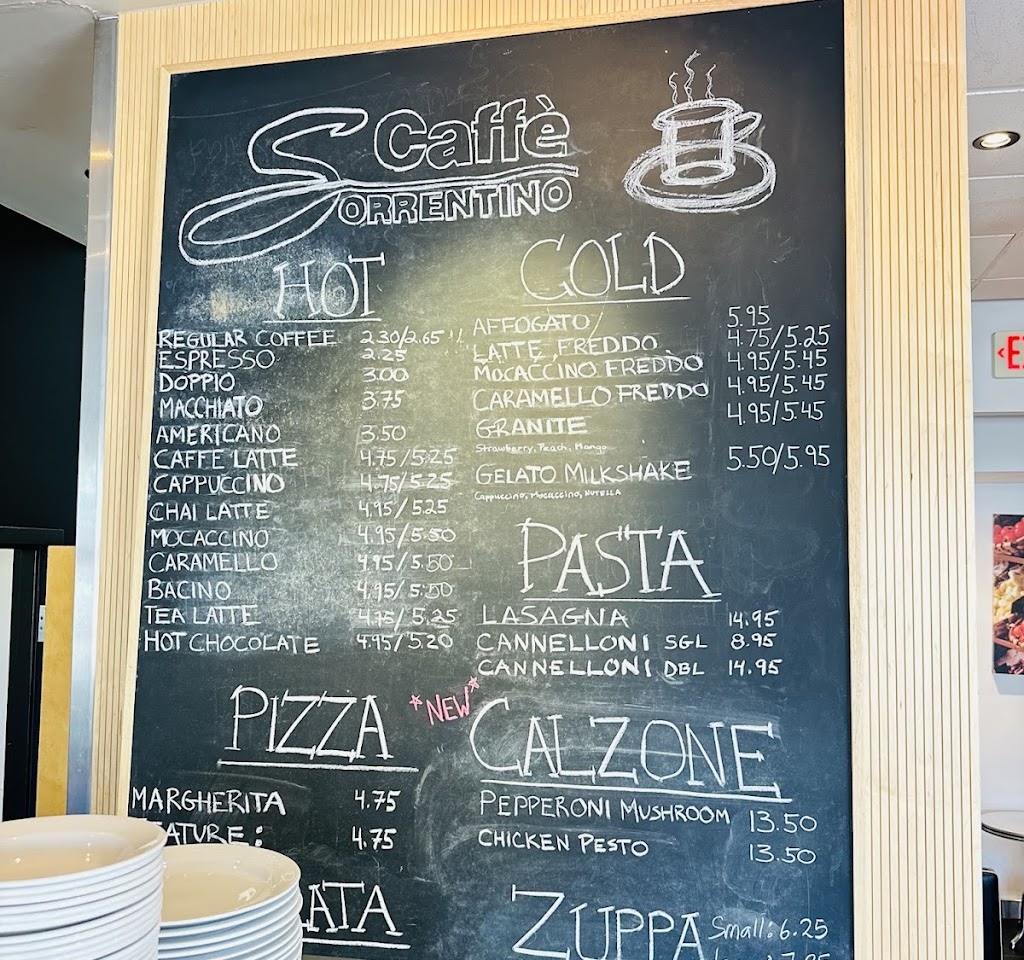 Caffè
SORRENTINO
HOT
REGULAR COFFEE 2.30/2.65
ESPRESSO 2.25
DOPPIO 3.00
MACCHIATO 3.75
AMERICANO 3.50
CAFFE LATTE 4.75/5.25
CAPPUCCINO 4.75/5.25
CHAI LATTE 4.95/5.25
MOCACCINO 4.95/5.50
CARAMELLO 4.95/5.50
BACINO 4.95/5.50
TEA LATTE 4.75/5.25
HOT CHOCOLATE 4.95/5.20
COLD
AFFOGATO 5.95
LATTE FREDDO 4.75/5.25
MOCACCINO FREDDO 4.95/5.45
CARAMELLO FREDDO 4.95/5.45
GRANITE 4.95/5.45
Strawberry, Peach, Mango
GELATO MILKSHAKE 5.50/5.95
Cappuccino, Mocaccino, NUTELLA
PASTA
LASAGNA 14.95
CANNELLONI SGL 8.95
CANNELLONI DBL 14.95
PIZZA
MARGHERITA 4.75
ATURE: 4.75
*NEW*
CALZONE
PEPPERONI MUSHROOM 13.50
CHICKEN PESTO 13.50
LATA
ZUPPA Small: 6.25